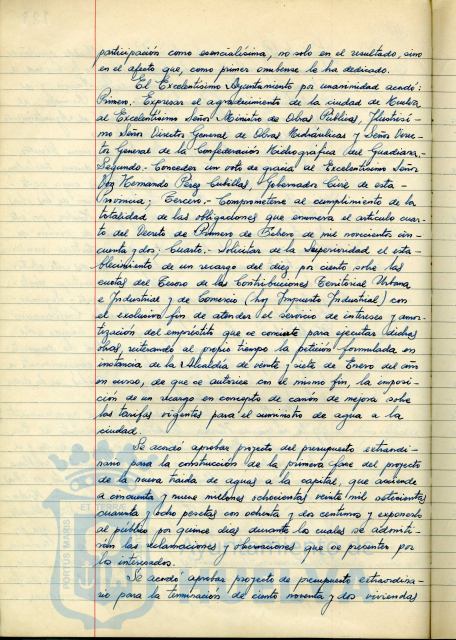 participación como esencialísima, no solo en el resultado, sino
en el afecto que, como primer onubense le ha dedicado.
El Excelentísimo Ayuntamiento por unanimidad acordó:
Primero.- Expresar el agradecimiento de la ciudad de Huelva
al Excelentísimo Señor Ministro de Obras Públicas, Ilustrísi-
mo Señor Director General de Obras Hidráulicas y Señor Direc-
tor General de la Confederación Hidrográfica del Guadiana.-
Segundo.- Conceder un voto de gracia al Excelentísimo Señor
Don Hernando Pérez Cubillas, Gobernador Civil de esta
Provincia; Tercero.- Comprometerse al cumplimiento de la
totalidad de las obligaciones que enumera el artículo cuar-
to del Decreto de Primero de Febrero de mil novecientos cin-
cuenta y dos; Cuarto.- Solicitar de la Superioridad el esta-
blecimiento de un recargo del diez por ciento sobre las
cuotas del Tesoro de las Contribuciones Territorial Urbana
e Industrial y de Comercio (hoy Impuesto Industrial) con
el exclusivo fin de atender el servicio de intereses y amor-
tización del empréstito que se concierte para ejecutar dichas
obras, reiterando al propio tiempo la petición formulada en
instancia de la Alcaldía de veinte y siete de Enero del año
en curso, de que se autorice con el mismo fin, la imposi-
ción de un recargo en concepto de canón de mejora sobre
las tarifas vigentes para el suministro de agua a la
ciudad.
Se acordó aprobar proyecto del presupuesto extraordi-
nario para la construcción de la primera fase del proyecto
de la nueva traida de aguas a la capital, que asciende
a cincuenta y nueve millones ochocientas veinte mil setecientas
cuarenta y ocho pesetas con ochenta y dos centimos y exponerlo
al público por quince días durante los cuales se admiti-
rían las reclamaciones y observaciones que se presenten por
los interesados.
Se acordó aprobar proyecto de presupuesto extraordina-
rio para la terminación de ciento noventa y dos viviendas
PORTUS MARIS
ET